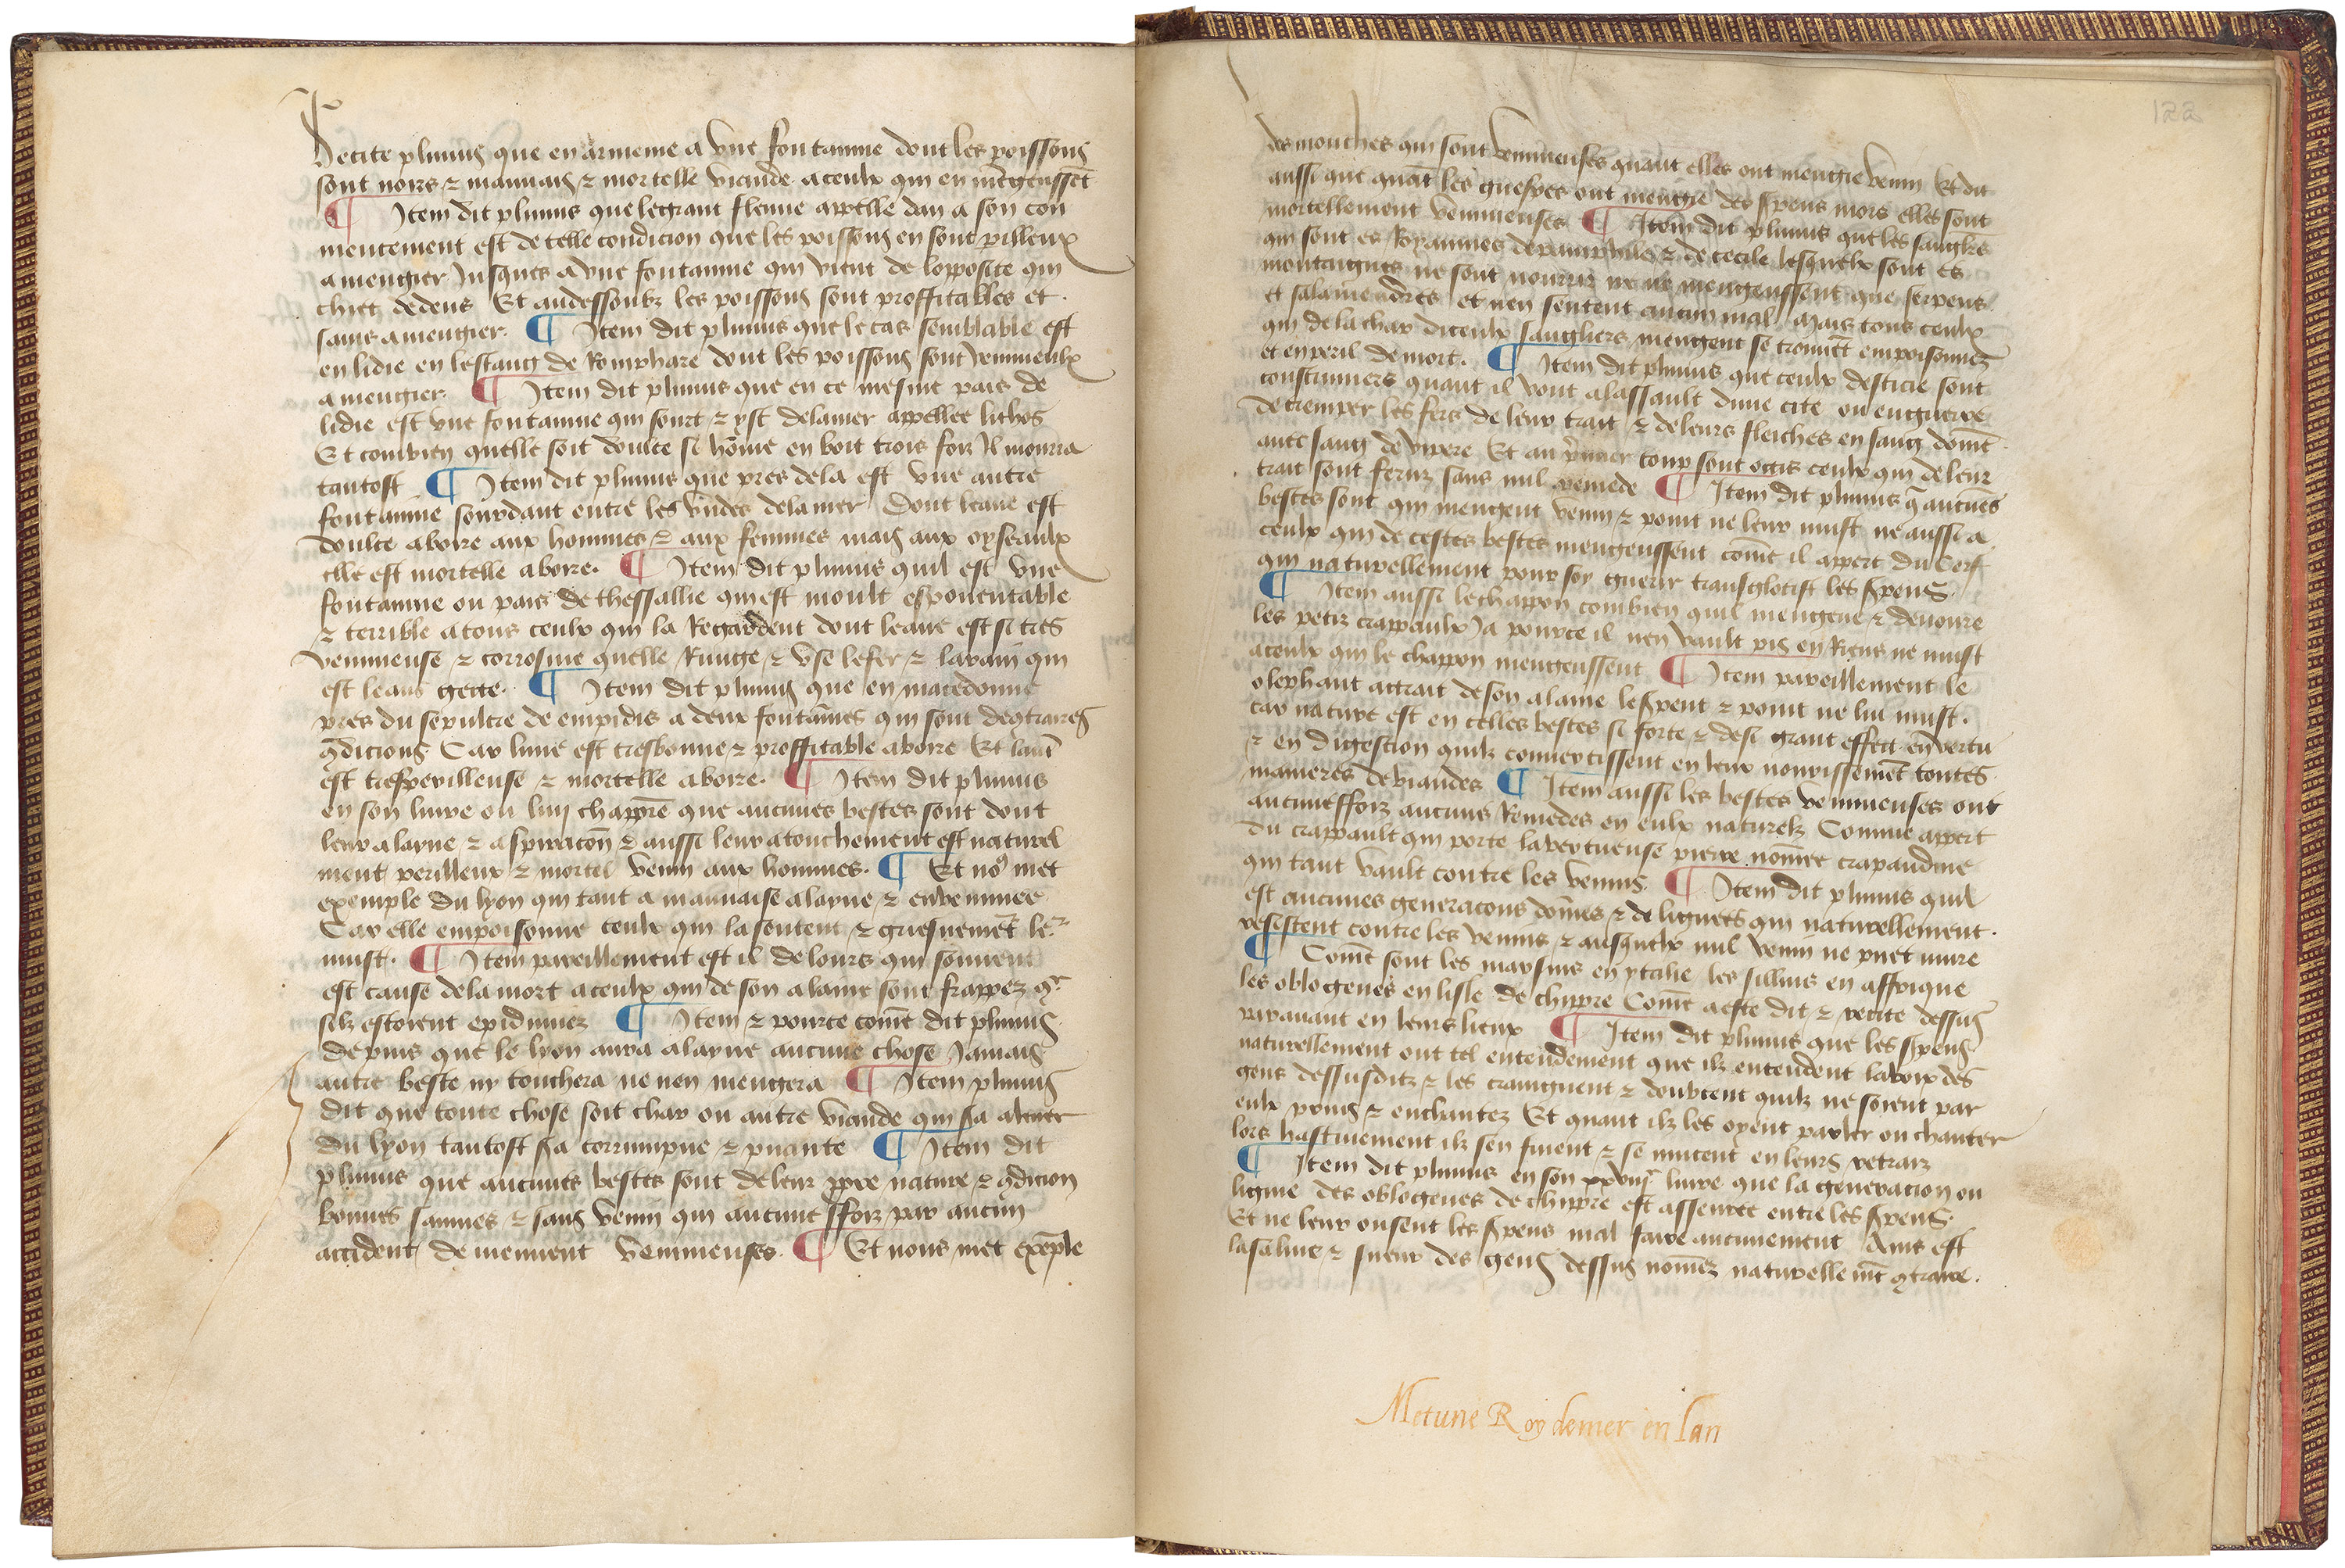 Recite plinius que en armenie a une fontaine dont les poissons
sont noirs & mauvais & mortelle viande a ceulx qui en mēgeussēt
¶ Item dit plinius que le grant fleuve appelle dan a son con
mencement est de telle condicion que les poissons en sont pilleux
a mengier Jusques a une fontaine qui vient de lopposite qui
chiet dedens Et audessoubz les poissons sont proffitables et
sains a mengier. ¶ Item dit plinius que le cas semblable est
en lidie en lestang de Romphare dont les poissons sont venimeulx
a mengier. ¶ Item dit plinius que en ce mesme pais de
lidie est une fontaine qui sourt & yst de la mer appellee lithos
Et combien quelle soit doulce se hōme en boit trois foiz Il mourra
tantost ¶ Item dit plinius que pres de la est une autre
fontaine sourdant entre les undes de la mer Dont leaue est
doulce a boire aux hommes & aux femmes mais aux oyseaulx
elle est mortelle a boire. ¶ Item dit plinius quil est une
fontaine ou pais de thessallie qui est moult espouentable
& terrible a tous ceulx qui la Regardent dont leaue est si tres
venimeuse & corrosive quelle Runge & use le fer & larain qui
est leans gecte. ¶ Item dit plinius que en macedonne
pres du sepulcre de empidis a deux fontaīnes qui sont de q̄traires
q̄dicions Car lune est tresbonne & proffitable a boire Et lautē
est tresperilleuse & mortelle a boire. ¶ Item dit plinius
en son livre ou liiij chappīre que aucunes bestes sont dont
leur alayne & aspiracōn & aussi leur atouchement est naturel
ment perilleux & mortel venin aux hommes. ¶ Et no9 met
exemple du lyon qui tant a mauvaise alayne & envenimee
Car elle empoisonne ceulx qui la sentent & griefvemēt le2
nuist. ¶ Item pareillement est il de lours qui souvent
est cause de la mort a ceulx qui de son alaine sont frappez q̄
silz estoient epidimiez ¶ Item & pource comē dit plinius
depuis que le lyon aura alayne aucune chose Jamais
autre beste ny touchera ne nen mengera ¶ Item plinius
dit que toute chose soit char ou autre viande qui sa
du lyon tantost sa corrumpue & puante ¶ Item dit
plinius que aucunes bestes sont de leur ppre nature & q̄dicion
bonnes saines & sans venin qui aucune ffoiz par aucun
accident deviennent venimeuses. ¶ Et nous met exēple
des mouches qui sont venimeuses quant elles ont mengie venin Et dit
aussi que quāt les guespes ont mengie des spens mors elles sont
mortellement venimeuses ¶ Item dit plinius que les sanglrs
qui sont es Royaumes de pamphille & de cecile lesquelx sont es
montaignes ne sont nourriz ne ne mengeussent que serpens
et salamēdres et nen sentent aucun mal Mais tous ceulx
qui de la char diceulx sangliers mengent se treuvēt empoisonnez
et en peril de mort. ¶ Item dit plinius que ceulx desticie sont
coustumiers quant il vont a lassault dune cite ou en guerre
de tremper les fers de leur trait & de leurs fleiches en sang domē
avec sang de vipere Et au p̄mier coup sont occis ceulx qui de leur
trait sont feruz sans nul remede ¶ Item dit plinius q̄ aucunes
bestes sont qui mengent venin & point ne leur nuist ne aussi a
ceulx qui de cestes bestes mengeussent comē il appert du Cerf
qui naturellement pour soy guerir transglotist les spens
¶ Item aussi le chappon combien quil mengeue & devoure
les petiz crappaulx Ja pource il nen vault pis en Riens ne nuist
a ceulx qui le chappon mengeussent ¶ Item pareillement le
olephant attrait de son alaine le spent & point ne lui nuist.
car nature est en celles bestes si forte & de si grant effect en vertu
& en digestion quilz convertissent en leur nourrissemēt toutes
manieres de viandes ¶ Item aussi les bestes venimeuses ont
aucunesffoiz aucuns Remedes en eulx naturelz Comme appert
du crappault qui porte la vertueuse pierre nommee crapaudine
qui tant vault contre les venins. ¶ Item dit plinius quil
est aucunes generacons dōmes & de lignees qui naturellement
resistent contre les venins & ausquelx nul venin ne puet nuire
¶ Comē sont les marsins en ytalie les sillins en affrique
les oblogenes en lisle de chippre Comē a este dit & recite dessus
paravant en leurs lieux ¶ Item dit plinius que les spens
naturellement ont tel entendement que ilz entendent la voix des
gens dessusditz & les craingnent & doubtent quilz ne soient par
eulx prins & enchantez Et quant ilz les oyent parler ou chanter
lors hastivement ilz sen fuient & se mucent en leurs retraiz
¶ Item dit plinius en son xxviije livre que la generacion ou
ligne des oblogenes de chippre est asseuree entre les spens
Et ne leur ousent les spens mal faire aucunement Ains est
la salive & sueur des gens dessus nōmez naturellemēt q̄traire.
Metune Roy demer en lan
122